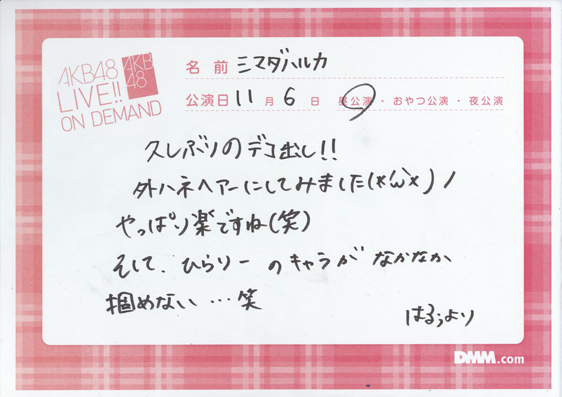 AKB48
LIVE!!
ON DEMAND
AKB
48
名前 シマダハルカ
公演日 11月6日 昼公演・おやつ公演・夜公演
久しぶりのデコ出し!!
外ハネヘアーにしてみました(*'ω'*)ノ
やっぱり楽ですね(笑)
そして、ひらりーのキャラがなかなか
掴めない…笑
はるぅより
DMM.com